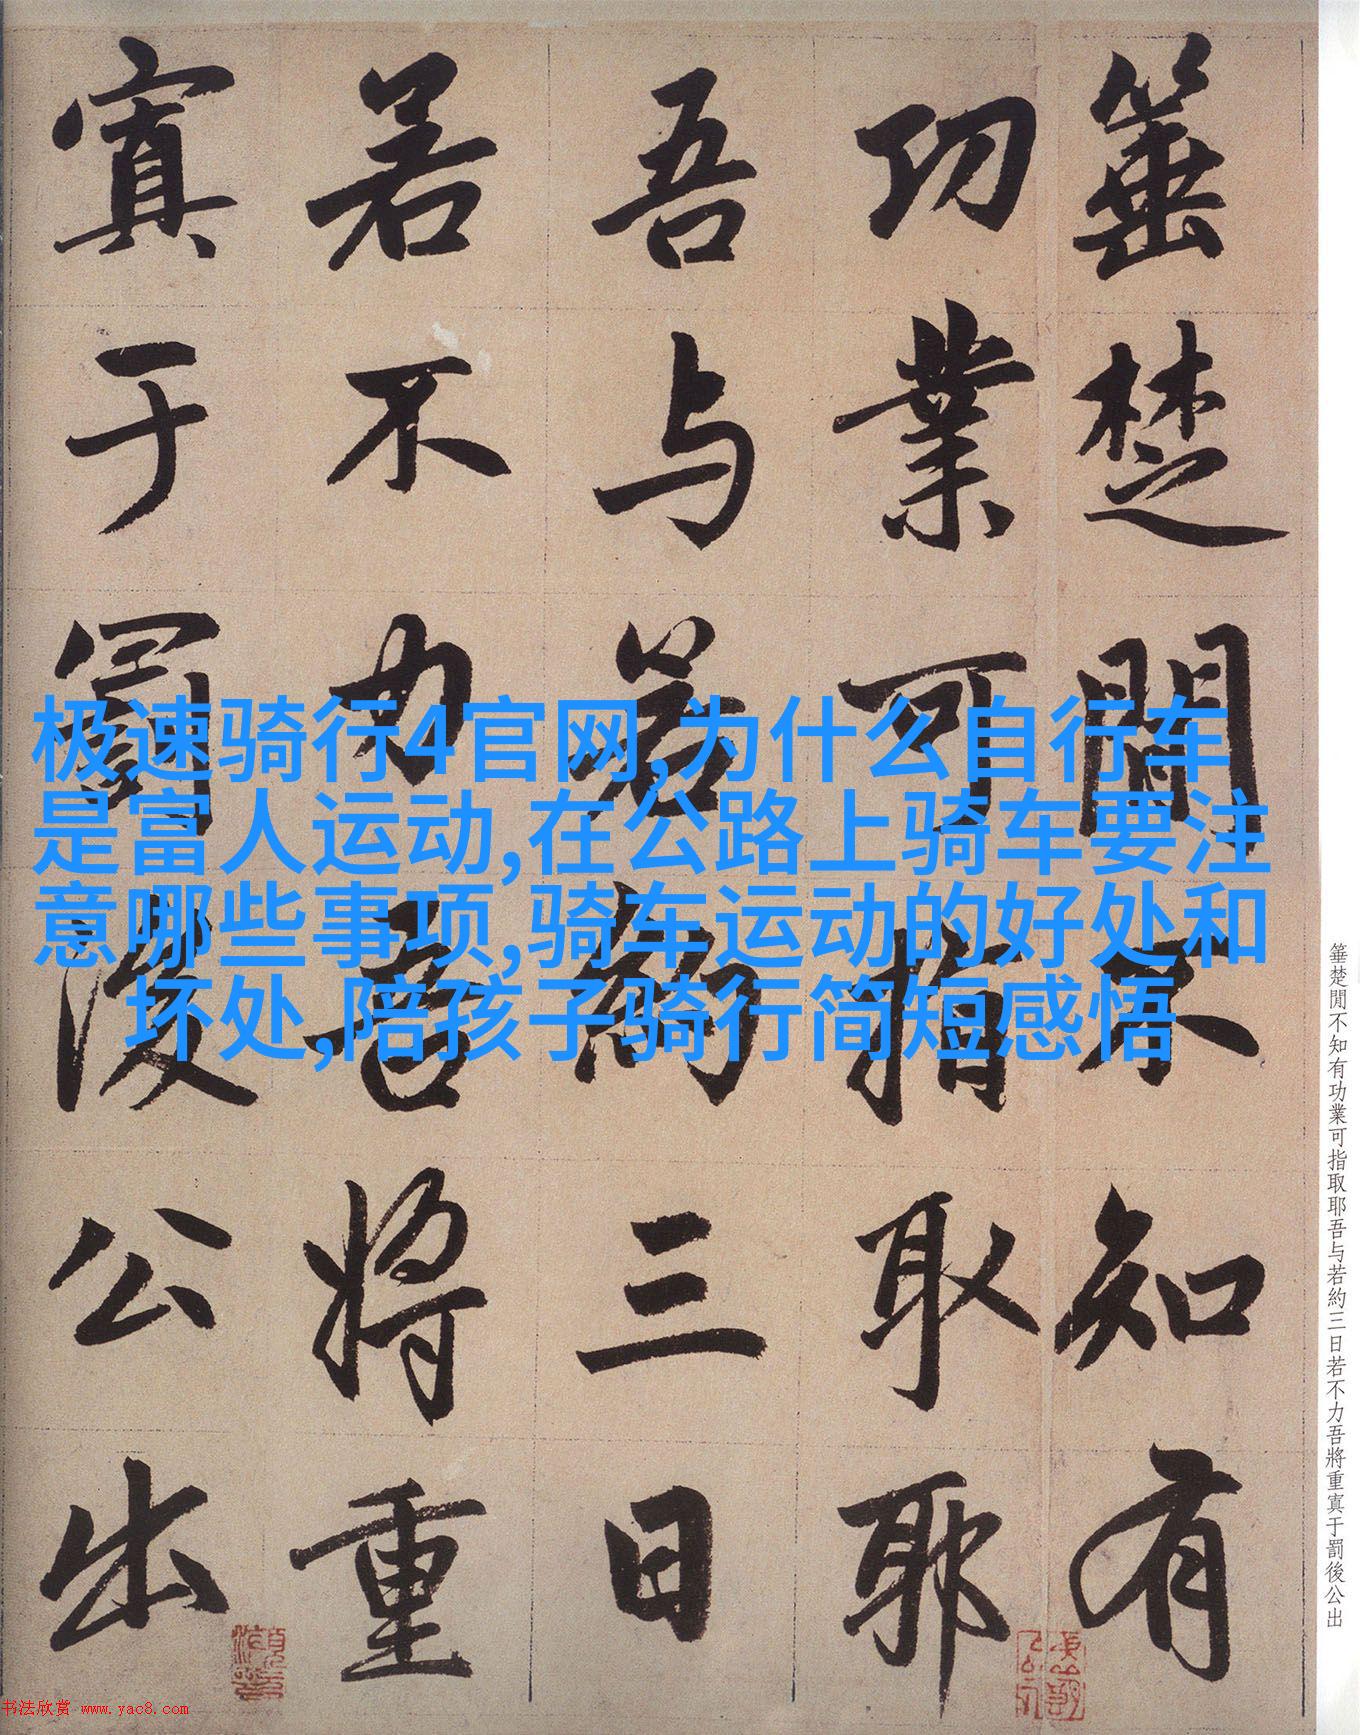 箠楚閒不知有
功業可指取耶
吾与若約三日
若不力吾將重
寘于罰後公出
极速骑行4官网,为什么自行车
是富人运动,在公路上骑车要注
意哪些事项,骑车运动的好处和
坏处,陪孩子骑行简短感悟
箠楚閒不知有功業可指取耶吾与若約三日若不力吾將重寘于罰後公出
书法欣赏 www.yac8.com